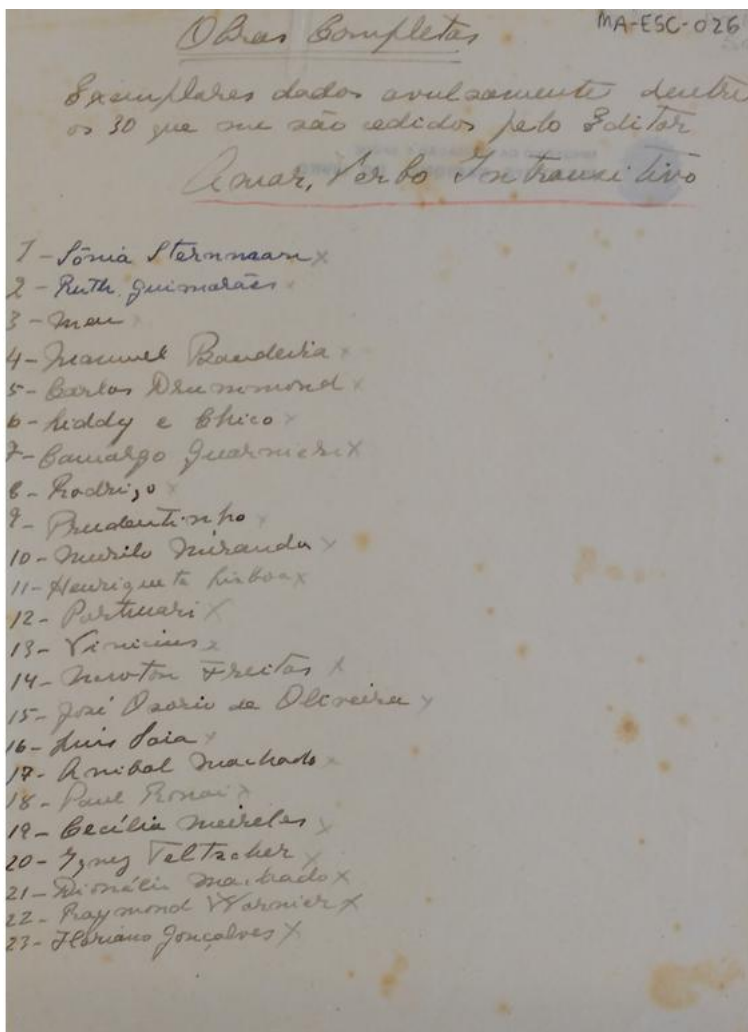 Obras Completas
MA-ESC-026
Exemplares dados avulsamente dentre
os 30 que me são cedidos pelo Editor
Amar, Verbo Intransitivo
1 - Sônia Sternman x
2 - Ruth Guimarães
3 - Meu
4 - Manuel Bandeira x
5 - Carlos Drummond x
6 - Liddy e Chico x
7 - Camargo Guarnieri x
8 - Rodrigo x
9 - Prudentinho x
10 - Murilo Miranda x
11 - Henriqueta Lisboa x
12 - Portinari x
13 - Vinicius x
14 - Newton Freitas x
15 - José Osorio de Oliveira x
16 - Luis Saia x
17 - Anibal Machado x
18 - Paul Ronai x
19 - Cecília Meireles x
20 - Ignez Teltscher x
21 - Dionélio Machado x
22 - Raymond Warnier x
23 - Floriano Gonçalves x